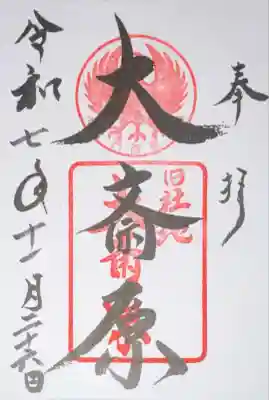 奉拝
大斎原
旧社地
令和七年十一月二十六日